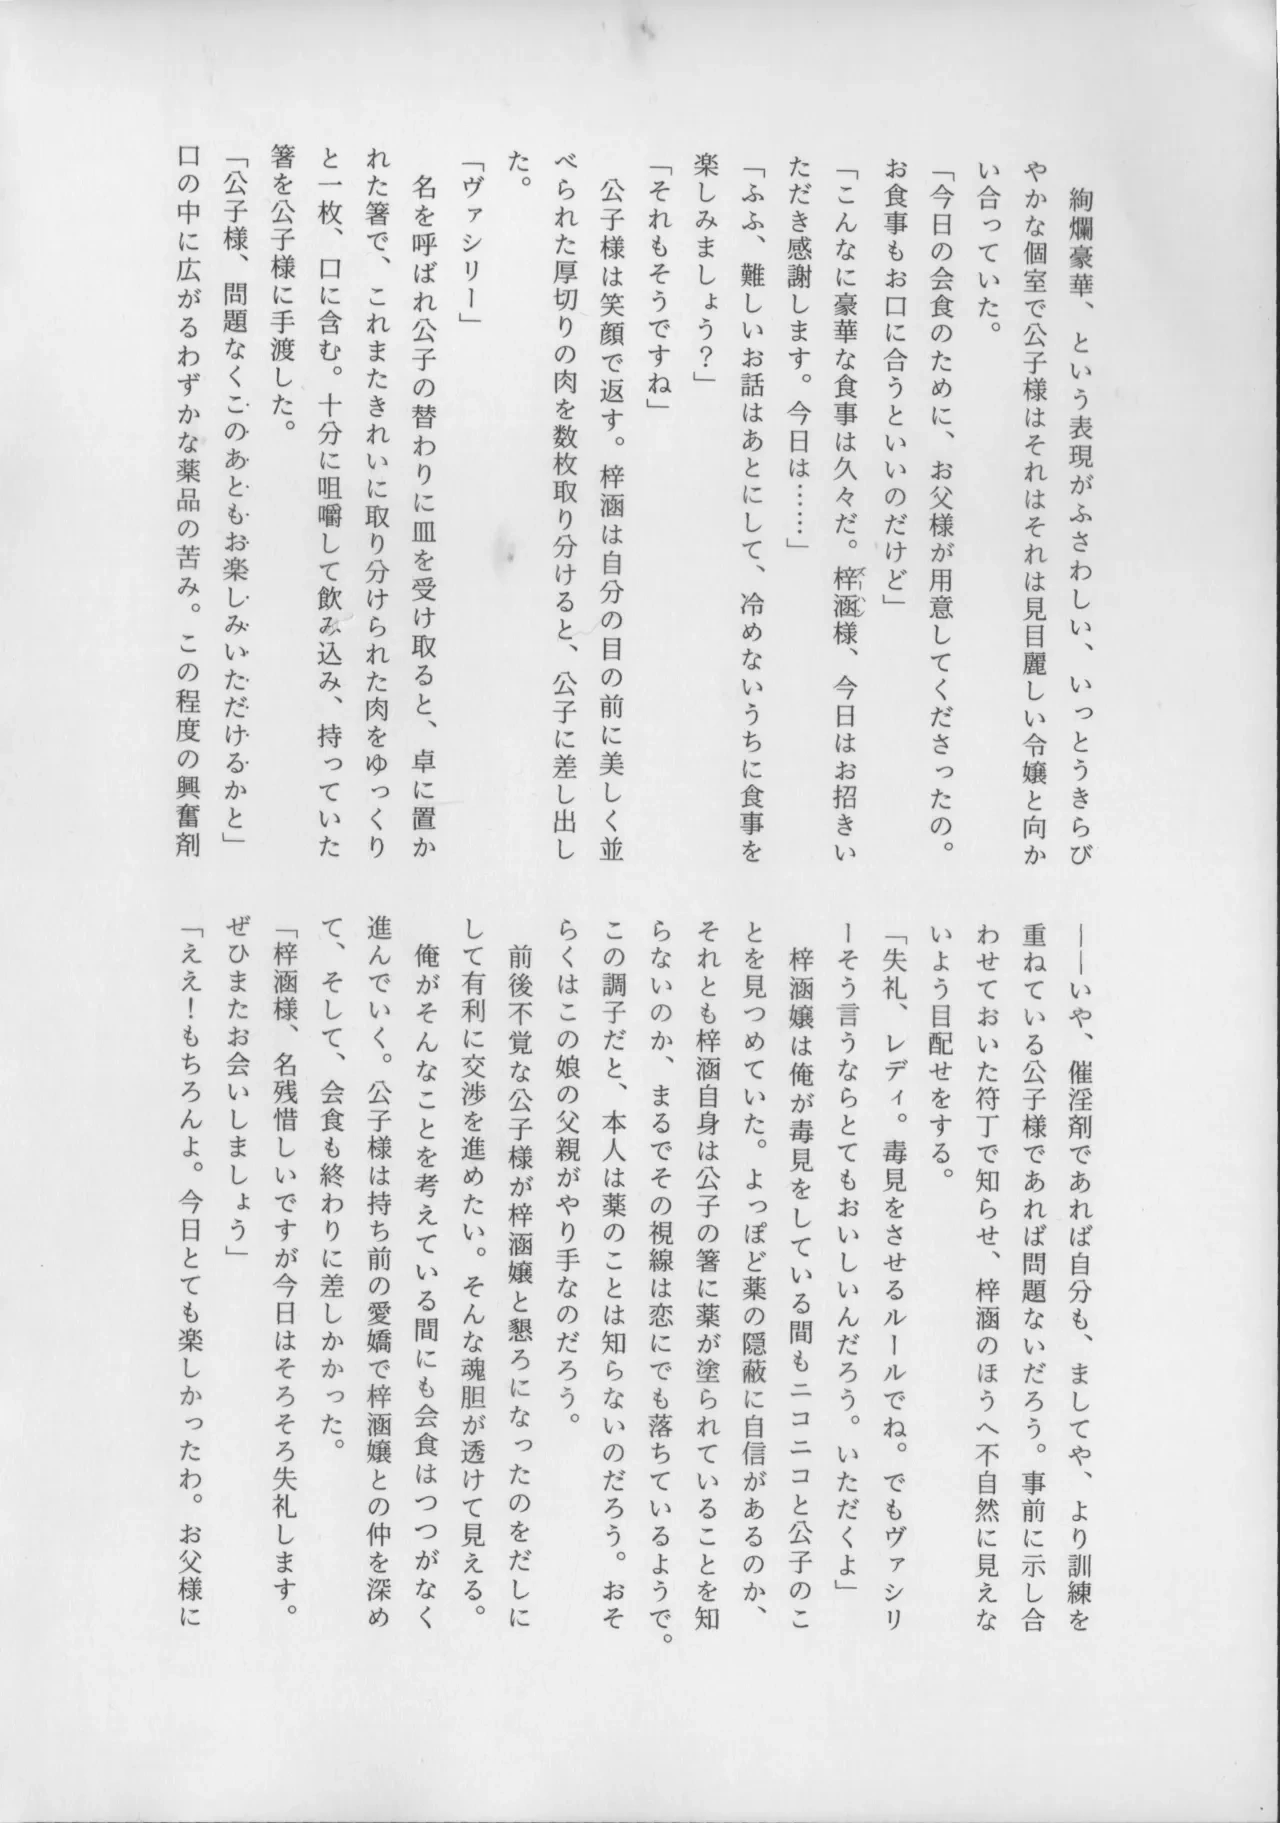 絢爛豪華、という表現がふさわしい、いっとうきらび
やかな個室で公子様はそれはそれは見目麗しい令嬢と向か
い合っていた。
「今日の会食のために、お父様が用意してくださったの。
お食事もお口に合うといいのだけど」
「こんなに豪華な食事は久々だ。梓涵様、今日はお招きい
ズーハン
ただき感謝します。今日は……」
「ふふ、難しいお話はあとにして、冷めないうちに食事を
楽しみましょう？」
「それもそうですね」
　公子様は笑顔で返す。梓涵は自分の目の前に美しく並
べられた厚切りの肉を数枚取り分けると、公子に差し出し
た。
「ヴァシリー」
　名を呼ばれ公子の替わりに皿を受け取ると、卓に置か
れた箸で、これまたきれいに取り分けられた肉をゆっくり
と一枚、口に含む。十分に咀嚼して飲み込み、持っていた
箸を公子様に手渡した。
「公子様、問題なくこのあともお楽しみいただけるかと」
口の中に広がるわずかな薬品の苦み。この程度の興奮剤
――いや、催淫剤であれば自分も、ましてや、より訓練を
重ねている公子様であれば問題ないだろう。事前に示し合
わせておいた符丁で知らせ、梓涵のほうへ不自然に見えな
いよう目配せをする。
「失礼、レディ。毒見をさせるルールでね。でもヴァシリ
ーそう言うならとてもおいしいんだろう。いただくよ」
　梓涵嬢は俺が毒見をしている間もニコニコと公子のこ
とを見つめていた。よっぽど薬の隠蔽に自信があるのか、
それとも梓涵自身は公子の箸に薬が塗られていることを知
らないのか、まるでその視線は恋にでも落ちているようで。
この調子だと、本人は薬のことは知らないのだろう。おそ
らくはこの娘の父親がやり手なのだろう。
　前後不覚な公子様が梓涵嬢と懇ろになったのをだしに
して有利に交渉を進めたい。そんな魂胆が透けて見える。
　俺がそんなことを考えている間にも会食はつつがなく
進んでいく。公子様は持ち前の愛嬌で梓涵嬢との仲を深め
て、そして、会食も終わりに差しかかった。
「梓涵様、名残惜しいですが今日はそろそろ失礼します。
ぜひまたお会いしましょう」
「ええ！もちろんよ。今日とても楽しかったわ。お父様に